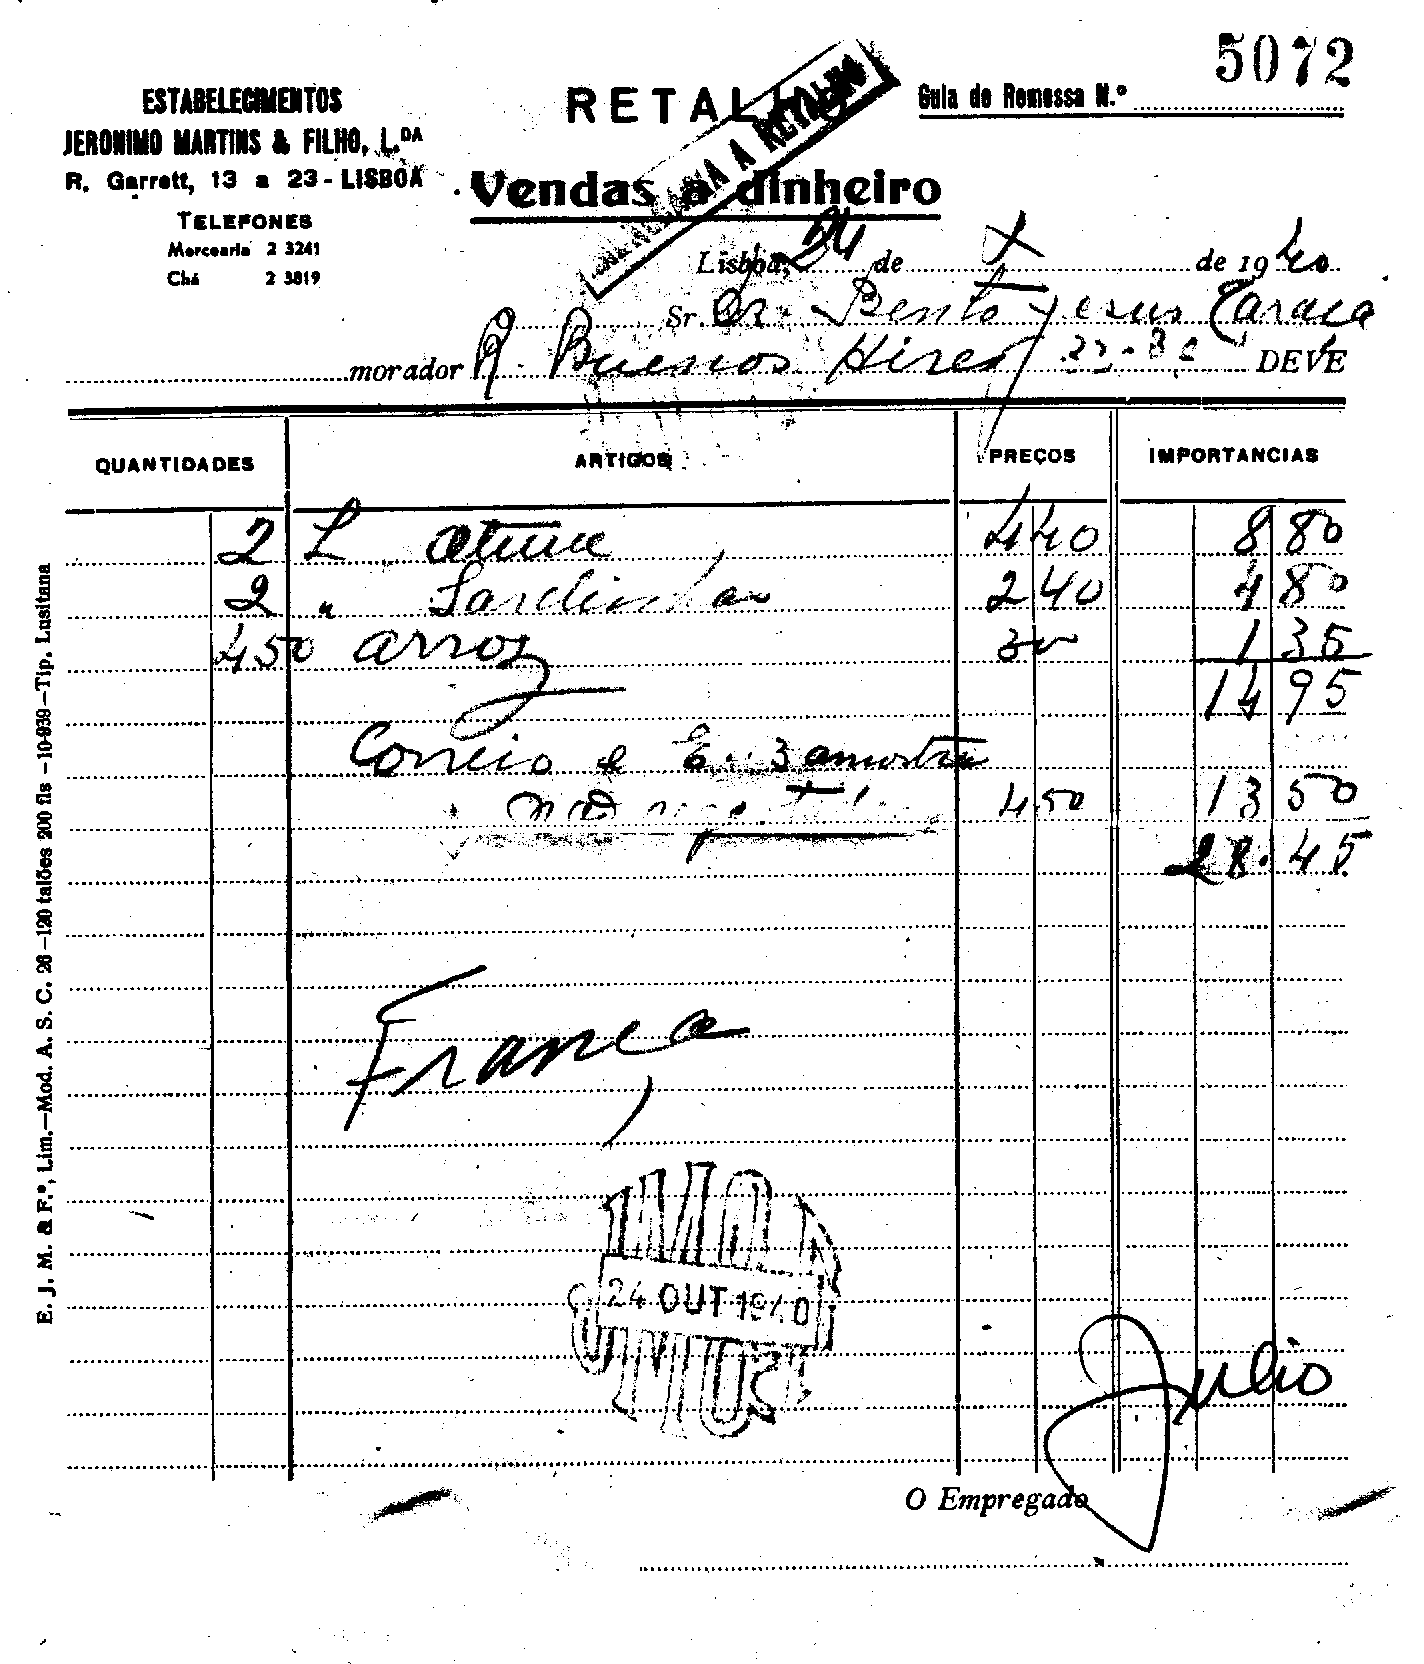 5072
ESTABELECIMENTOS
JERONIMO MARTINS & FILHO, L.DA
R. Garrett, 13 a 23 - LISBOA
TELEFONES
Mercearia 2 3241
Chá 2 3819
RETALHO
Guia de Remessa N.º
Vendas a dinheiro
Lisboa, 24 de X de 1940
Sr. Dr. Bento Jesus Caraça
morador R. Buenos Aires DEVE
QUANTIDADES ARTIGOS PREÇOS IMPORTANCIAS
2 L atum 4 40 8 80
2 " Sardinhas 2 40 4 80
450 arroz 30 1 35
14 95
Correio e 3 amostras
4 50 13 50
28.45
França
24 OUT 1940
Julio
O Empregado
E. J. M. & F.º, Lim.—Mod. A. S. C. 26—120 talões 200 fls—10-939—Tip. Lusitana